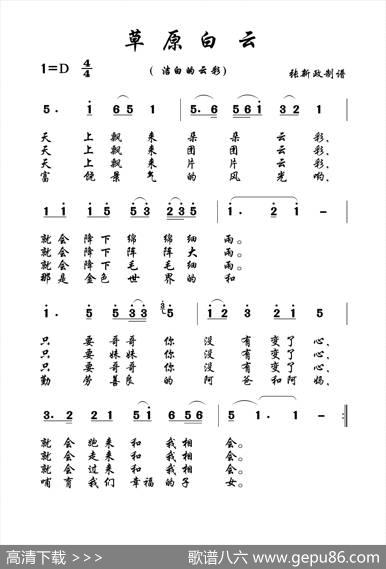 草原白云
1=D 4/4
(洁白的云彩)
张新政制谱
5. 1 65 1 | 5. 6 561 32 1 |
天上飘来朵朵云彩、
天上飘来团团云彩、
天上飘来片片云彩、
富饶景气的风光哟、
11 15 5 53 235 | 1. 2 1 - |
就会降下绵绵细雨。
就会降下阵阵大雨。
就会降下毛毛细雨。
那是金色世界的和
1. 5 533 35 | 12 3 221 5 |
只要哥哥你没有变了心、
只要妹妹你没有变了心、
只要哥哥你没有变了心、
勤劳善良的阿爸和阿妈、
3. 2 221 51 6 56 | 5 1. 1 - :||
就会跑来和我相会。
就会走来和我相会。
就会过来和我相会。
哺育我们幸福的子女。
高清下载 >>>
歌谱八六 www.gepu86.com